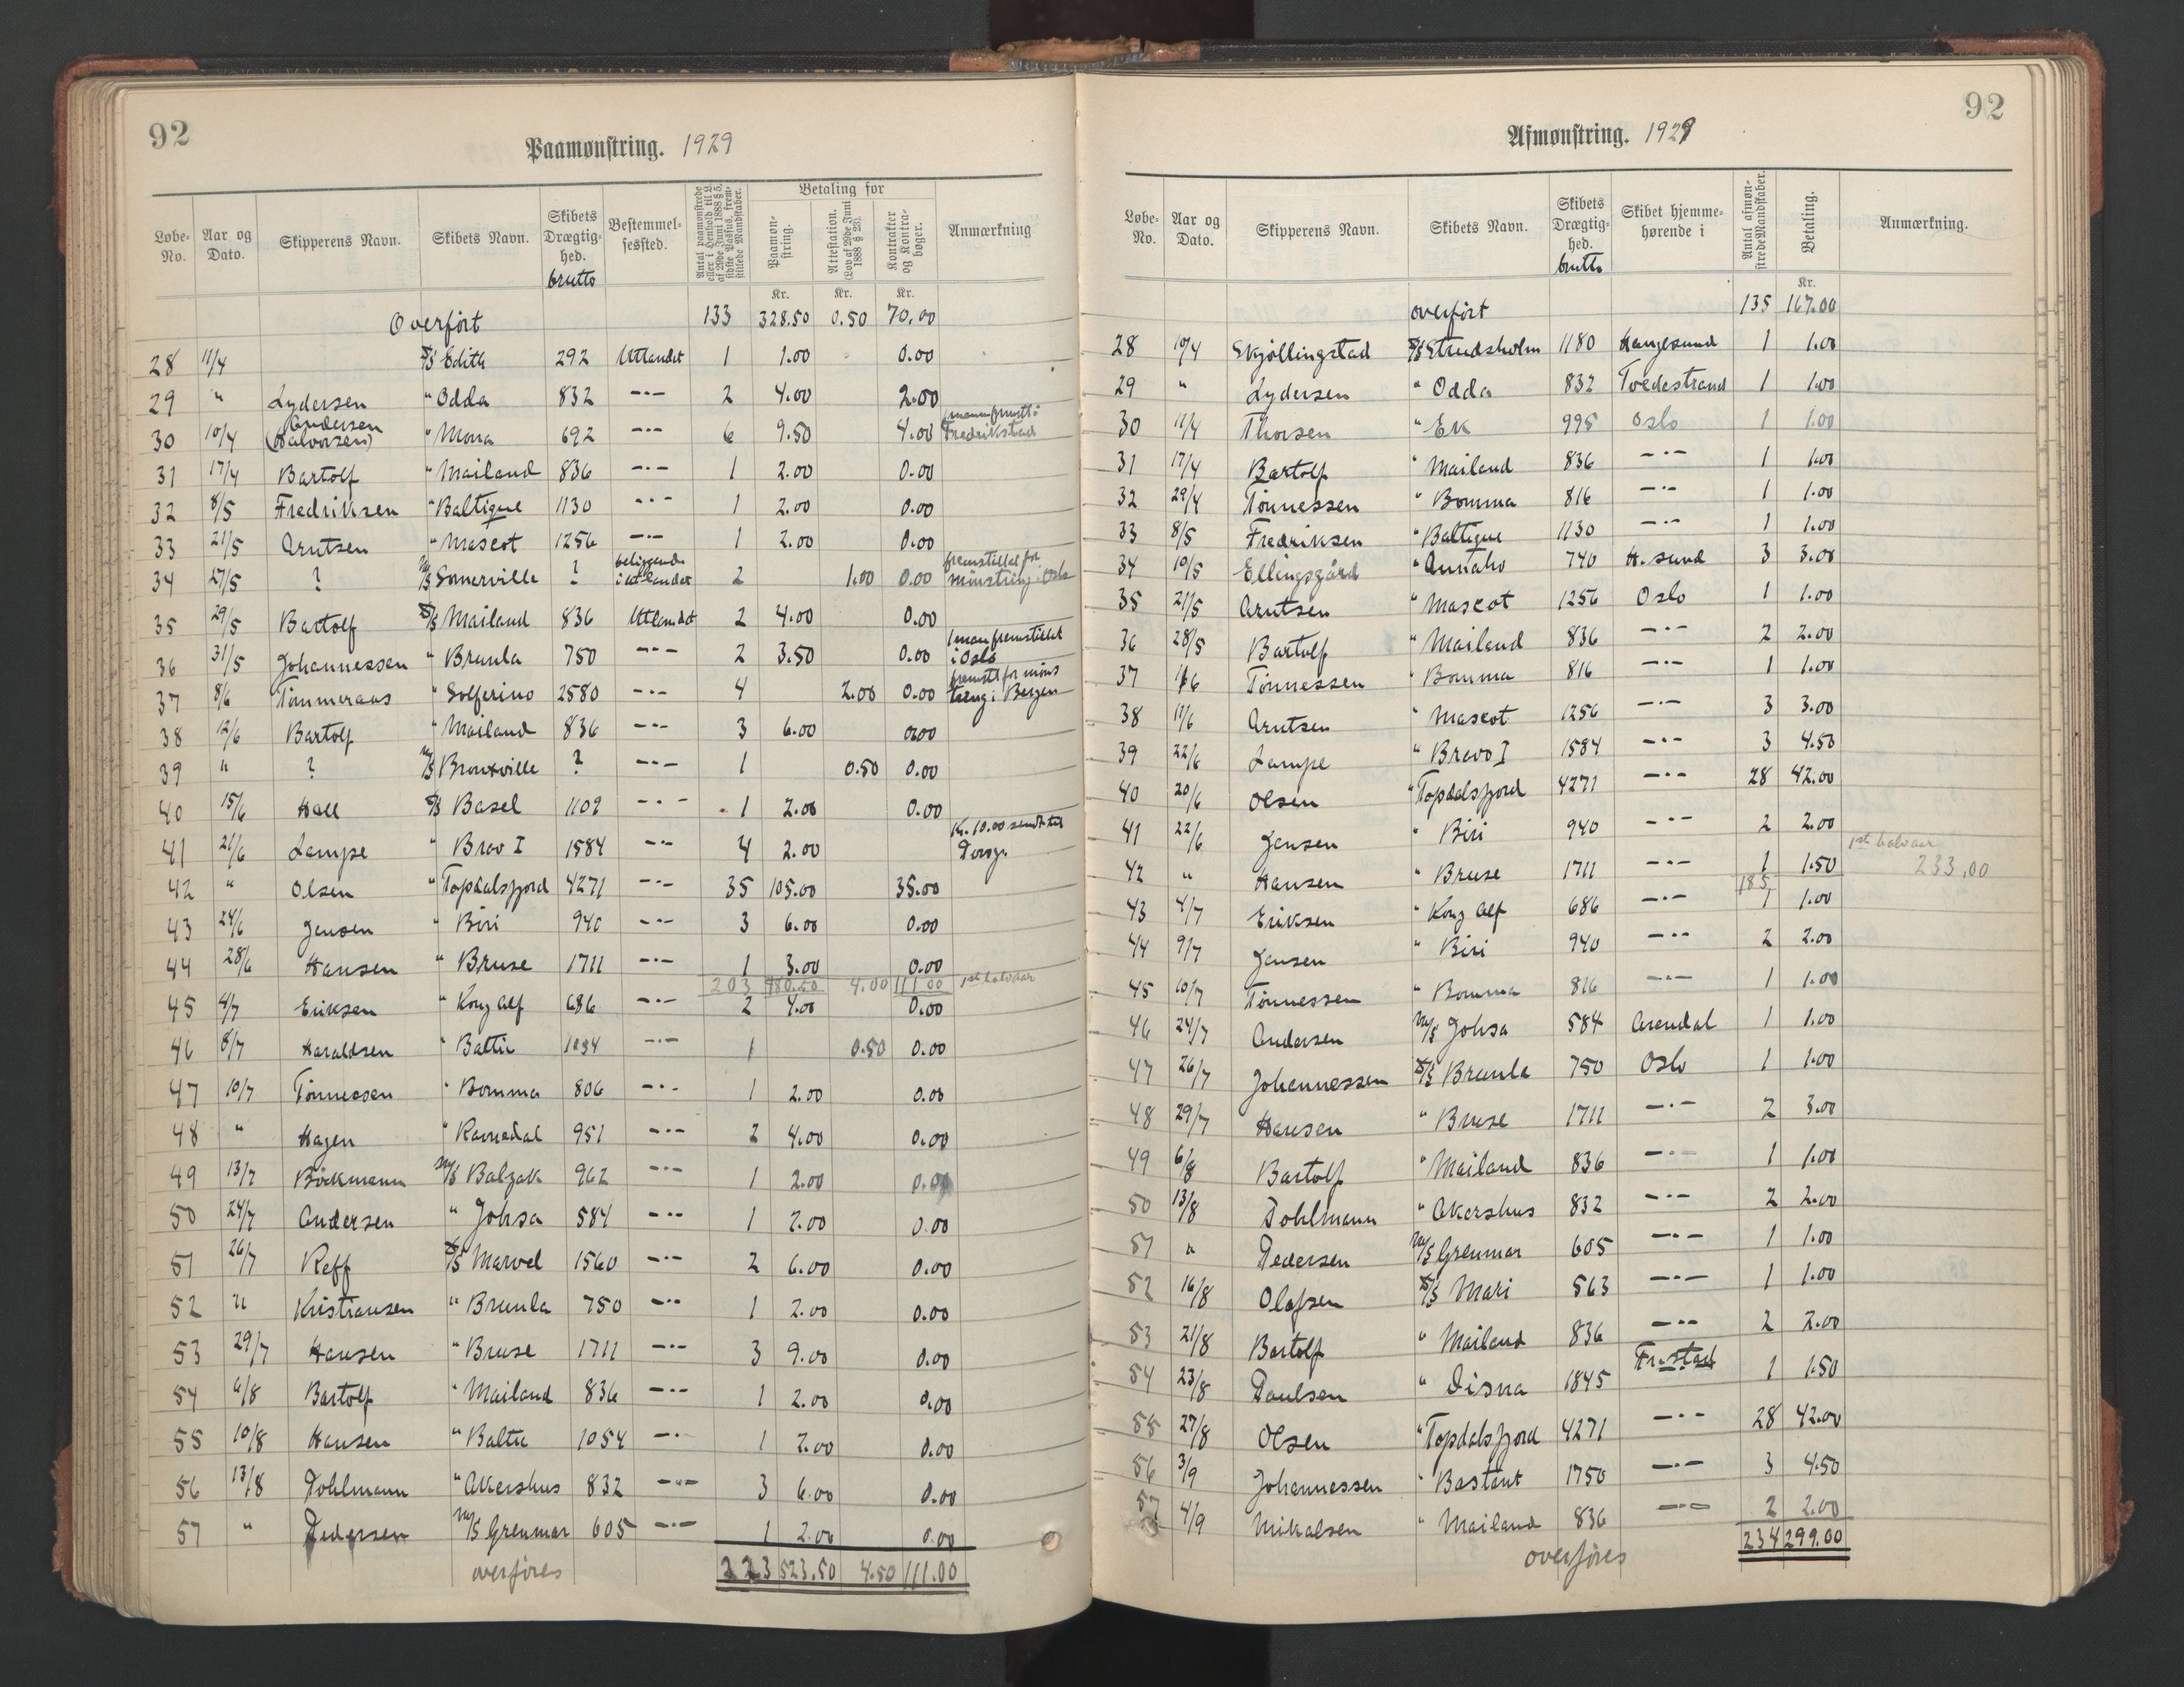 92
Paamønstring. 1929
Løbe-No. Aar og Dato. Skipperens Navn. Skibets Navn. Skibets Drægtighed. brutto Bestemmelsessted. Antal paamønstrede eller i Henhold til L. af 29de Juni 1888 § 5, sidste Passus, fremstillede Mandskaber. Betaling for Paamønstring. Attestation. (Lov af 29de Juni 1888 § 23). Kontrakter og Kontrabøger. Anmærkning
Kr. Kr. Kr.
Overført 133 328.50 0.50 70.00
28 11/4 S/S Edith 292 Utlandet 1 1.00 0.00
29 " Lydersen " Odda 832 —·— 2 4.00 2.00
30 10/4 Andersen (Halvorsen) " Mona 692 —·— 6 9.50 4.00 Fredrikstad
31 17/4 Bartolf " Mailand 836 —·— 1 2.00 0.00
32 8/5 Fredriksen " Baltique 1130 —·— 1 2.00 0.00
33 21/5 Arntsen " Mascot 1256 —·— 1 2.00 0.00
34 27/5 ? M/S Somerville ? beliggende i utlandet 2 1.00 0.00 fremstillet for mønstring i Oslo
35 29/5 Bartolf S/S Mailand 836 Utlandet 2 4.00 0.00
36 31/5 Johannessen " Brunla 750 —·— 2 3.50 0.00 1 man fremstillet i Oslo
37 8/6 Tømmeraas " Solferino 2580 —·— 4 2.00 0.00 fremst for mønstring i Bergen
38 12/6 Bartolf " Mailand 836 —·— 3 6.00 0.00
39 " ? M/S Bronxville ? —·— 1 0.50 0.00
40 15/6 Hall S/S Basel 1109 —·— 1 2.00 0.00
41 21/6 Lampe " Bravo I 1584 —·— 4 2.00 Kr. 10.00 sendt til Porsgr.
42 " Olsen " Topdalsfjord 4271 —·— 35 105.00 35.00
43 24/6 Jensen " Biri 940 —·— 3 6.00 0.00
44 28/6 Hansen " Bruse 1711 —·— 1 3.00 0.00
203 480.50 4.00 111.00 1ste halvaar
45 4/7 Eriksen " Kong Alf 686 —·— 2 4.00 0.00
46 8/7 Haraldsen " Baltic 1054 —·— 1 0.50 0.00
47 10/7 Tønnessen " Bomma 806 —·— 1 2.00 0.00
48 " Hagen " Ravnedal 951 —·— 2 4.00 0.00
49 13/7 Böckmann M/S Balzak 962 —·— 1 2.00 0.00
50 24/7 Andersen " Johsa 584 —·— 1 2.00 0.00
51 26/7 Reff S/S Marvel 1560 —·— 2 6.00 0.00
52 " Kristiansen " Brunla 750 —·— 1 2.00 0.00
53 29/7 Hansen " Bruse 1711 —·— 3 9.00 0.00
54 6/8 Bartolf " Mailand 836 —·— 1 2.00 0.00
55 10/8 Hansen " Baltic 1054 —·— 1 2.00 0.00
56 13/8 Dohlmann " Akershus 832 —·— 3 6.00 0.00
57 " Pedersen M/S Grenmar 605 —·— 1 2.00 0.00
overføres 223 523.50 4.50 111.00
92
Afmønstring. 1929
Løbe-No. Aar og Dato. Skipperens Navn. Skibets Navn. Skibets Drægtighed. brutto Skibet hjemmehørende i Antal afmønstrede Mandskaber. Betaling. Anmærkning.
Kr.
overført 135 167.00
28 10/4 Skjöllingstad S/S Strudsholm 1180 Haugesund 1 1.00
29 " Lydersen " Odda 832 Tvedestrand 1 1.00
30 11/4 Thorsen " Ek 995 Oslo 1 1.00
31 17/4 Bartolf " Mailand 836 —·— 1 1.00
32 29/4 Tønnessen " Bomma 816 —·— 1 1.00
33 8/5 Fredriksen " Baltique 1130 —·— 1 1.00
34 10/5 Ellingsgård " Annaho 740 H.sund 3 3.00
35 21/5 Arntsen " Mascot 1256 Oslo 1 1.00
36 28/5 Bartolf " Mailand 836 —·— 2 2.00
37 1/6 Tønnessen " Bomma 816 —·— 1 1.00
38 11/6 Arntsen " Mascot 1256 —·— 3 3.00
39 22/6 Lampe " Bravo I 1584 —·— 3 4.50
40 20/6 Olsen " Topdalsfjord 4271 —·— 28 42.00
41 22/6 Jensen " Biri 940 —·— 2 2.00
42 " Hansen " Bruse 1711 —·— 1 1.50 1ste halvaar 233,00
185
43 4/7 Eriksen " Kong Alf 686 —·— 1 1.00
44 9/7 Jensen " Biri 940 —·— 2 2.00
45 10/7 Tønnessen " Bomma 816 —·— 1 1.00
46 24/7 Andersen M/S Johsa 584 Arendal 1 1.00
47 26/7 Johannessen S/S Brunla 750 Oslo 1 1.00
48 29/7 Hansen " Bruse 1711 —·— 2 3.00
49 6/8 Bartolf " Mailand 836 —·— 1 1.00
50 13/8 Dohlmann " Akershus 832 —·— 2 2.00
51 " Pedersen M/S Grenmar 605 —·— 1 1.00
52 16/8 Olafsen S/S Mari 563 —·— 1 1.00
53 21/8 Bartolf " Mailand 836 —·— 2 2.00
54 23/8 Paulsen " Disna 1845 Fr.stad 1 1.50
55 27/8 Olsen " Topdalsfjord 4271 —·— 28 42.00
56 3/9 Johannessen " Bastant 1750 —·— 3 4.50
57 4/9 Mikalsen " Mailand 836 —·— 2 2.00
overføres 234 299.00